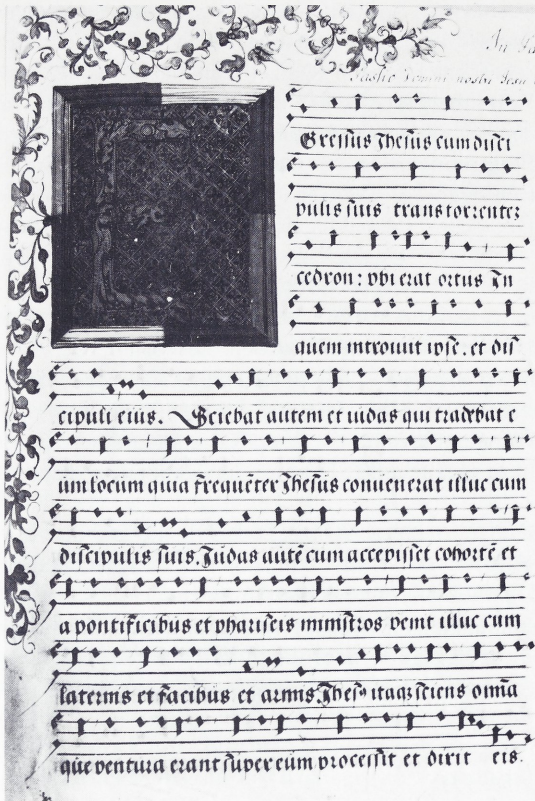 In Pa
Passio domini nostri Jesu
EGressus Jhesus cum disci
pulis suis trans torrentez
cedron: vbi erat ortus In
quem introiuit ipse. et dis
cipuli eius. Sciebat autem et iudas qui tradebat e
um locum quia frequēter Jhesus conuenerat illuc cum
discipulis suis. Judas autē cum accepisset cohortē et
a pontificibus et phariseis ministros venit illuc cum
laternis et facibus et armis. Jhesꝰ itaqꝫ sciens omīa
que ventura erant super eum processit et dixit eis.